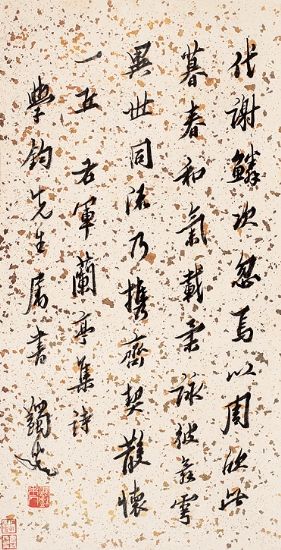 代謝鱗次忽焉以周欣此
暮春和氣載柔詠彼舞雩
異世同流乃攜齊契散懷
一丘 右軍蘭亭集詩
學鈞先生屬書 蠲叟